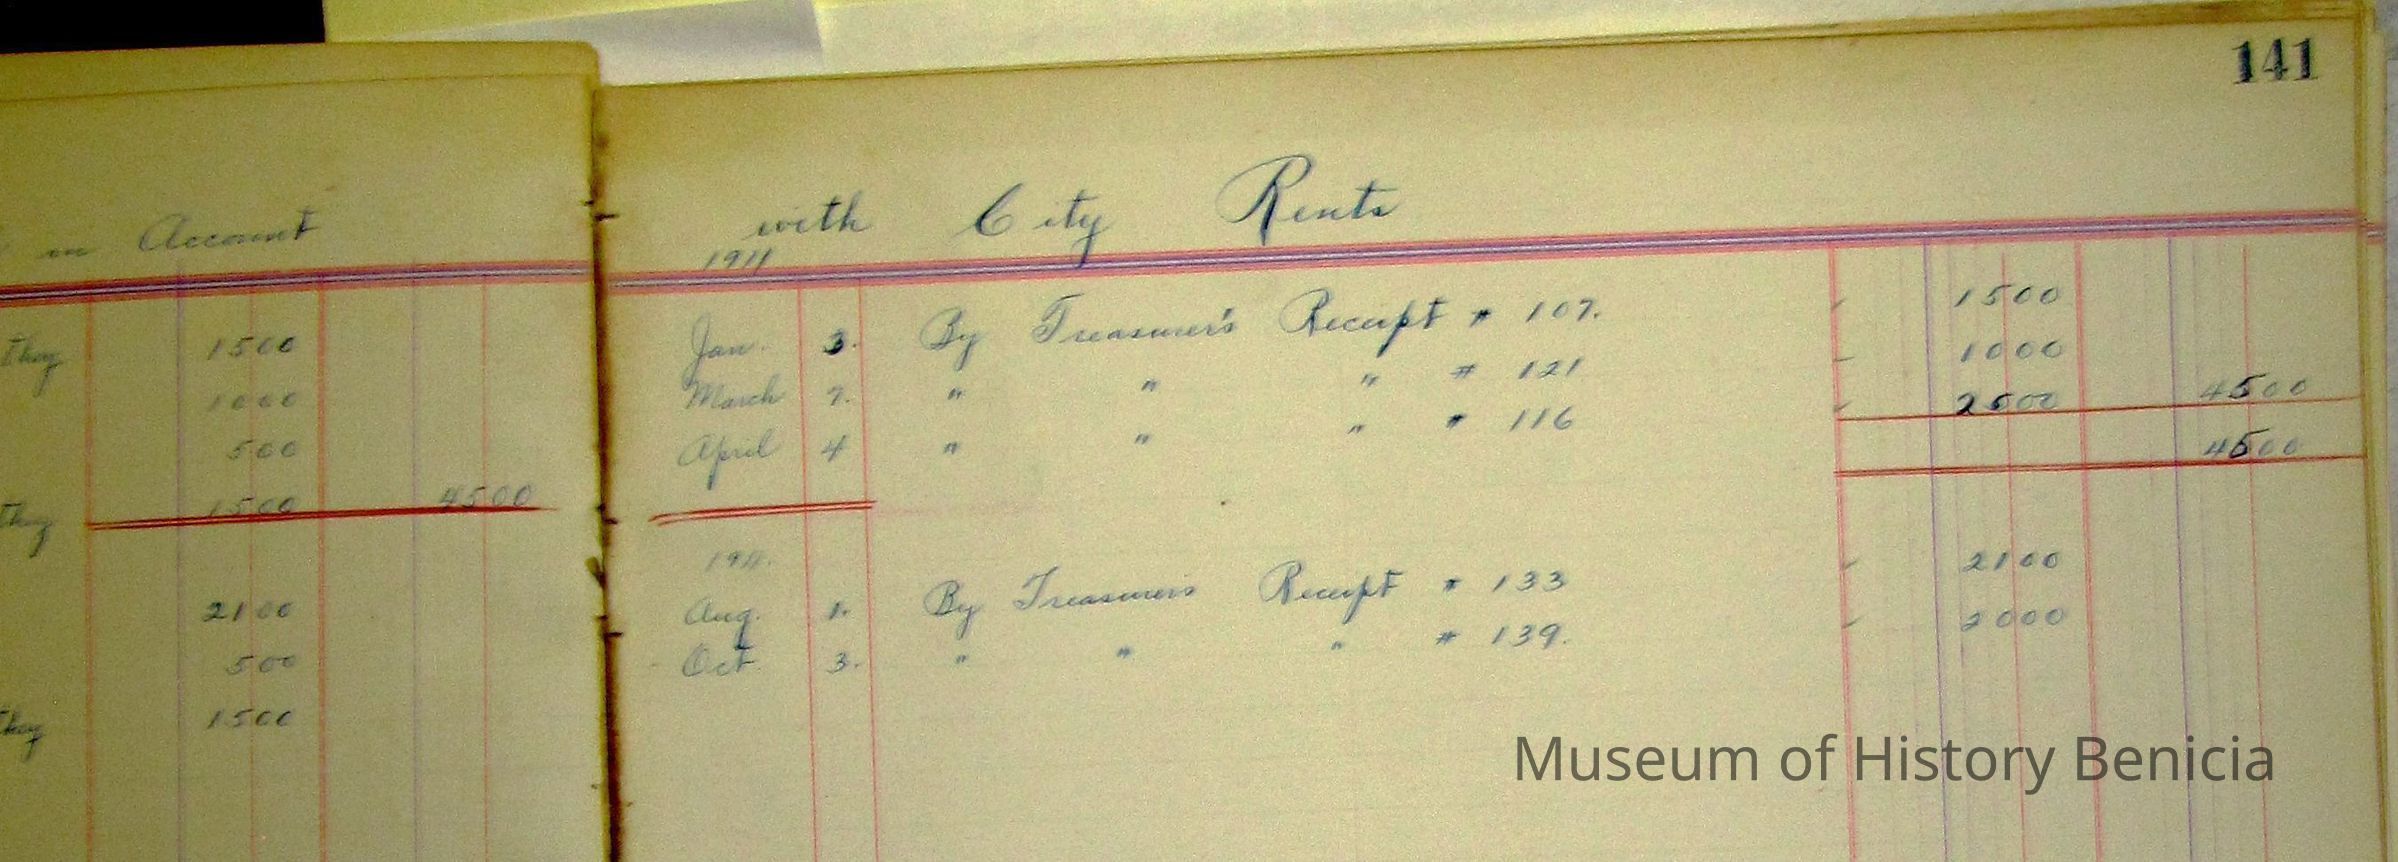 141
in Account
1500
1000
500
1500 4500
2100
500
1500
with City Rents
1911
Jan. 3. By Treasurer's Receipt # 107. 1500
March 7. " " " # 121 1000
April 4 " " " # 116 2000 4500
4500
1911.
Aug. 1. By Treasurer's Receipt # 133 2100
Oct. 3. " " " # 139. 2000
Museum of History Benicia